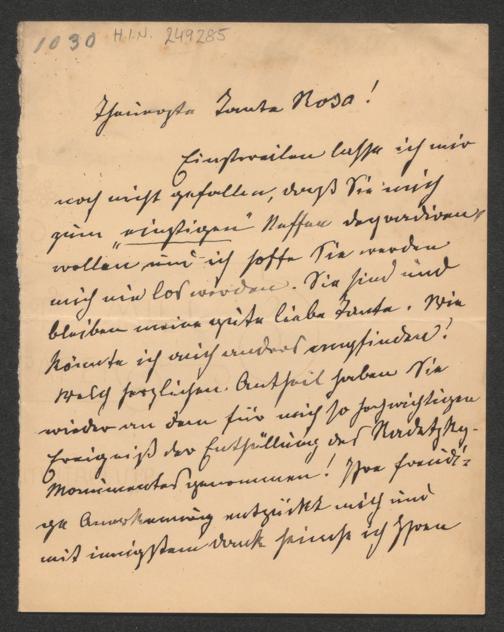 1030 H.I.N. 249285
Theuerste Tante Rosa!
Einstweilen lasse ich mir
noch nicht gefallen, daß Sie mich
zum „einstigen" Neffen degradiren
wollen und ich hoffe Sie werden
mich nie los werden. Sie sind und
bleiben meine gute liebe Tante. Wie
könnte ich auch anders empfinden!
Welch herzlichen Antheil haben Sie
wieder an dem für mich so hochwichtigen
Ereigniß der Enthüllung des Radetzky-
Monumentes genommen! Ihre freudi-
ge Anerkennung entzückt mich und
mit innigstem Dank heimse ich Ihren